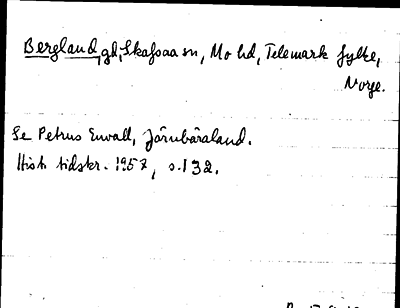 Bergland, gd, Skafsaa sn, Mo hd, Telemark fylke,
Norge.
Se Petrus Envall, Järnbäraland.
Hist. tidskr. 1957, s. 132.